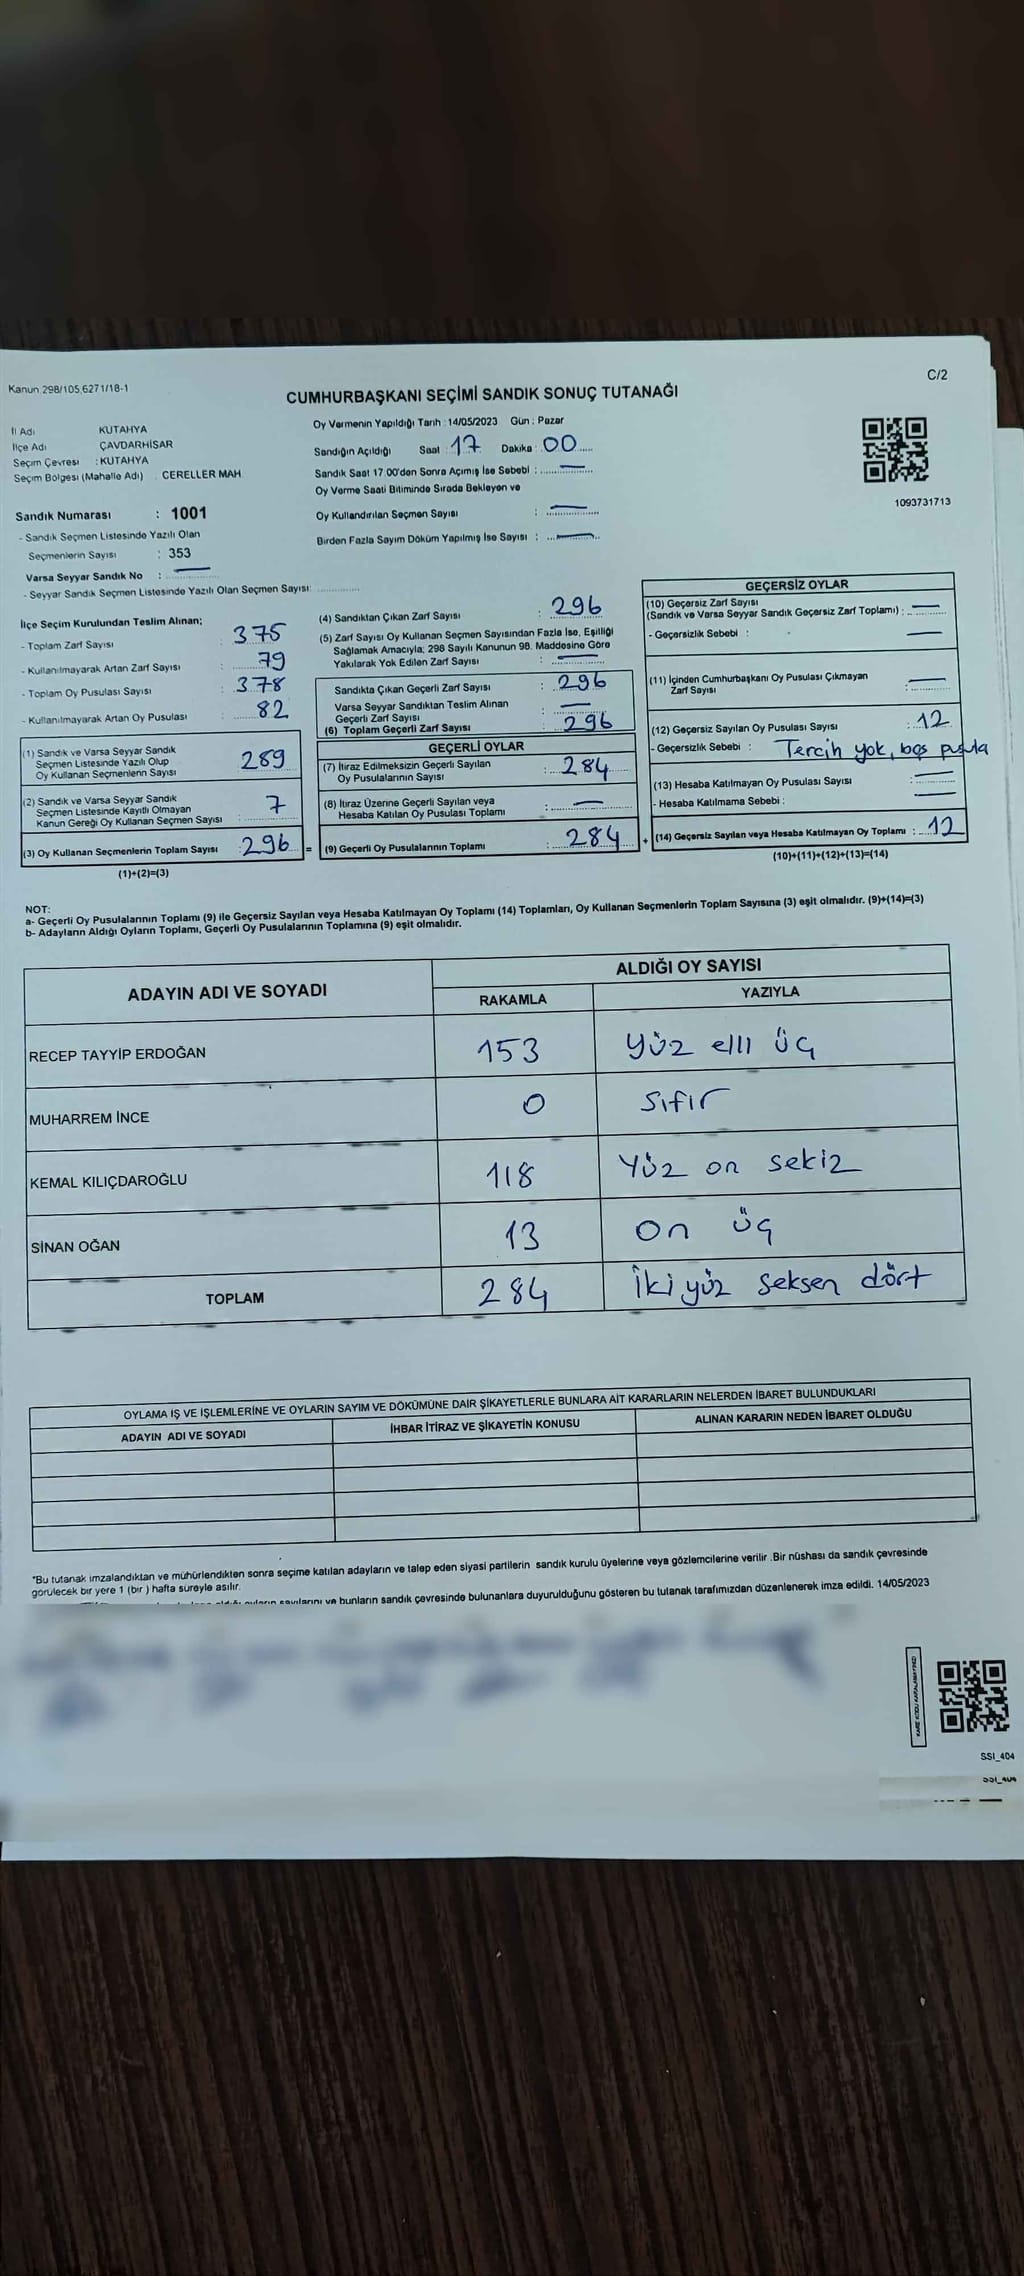 Kanun 298/105,6271/18-1
C/2
CUMHURBAŞKANI SEÇİMİ SANDIK SONUÇ TUTANAĞI
İl Adı KUTAHYA
İlçe Adı ÇAVDARHİSAR
Seçim Çevresi : KUTAHYA
Seçim Bölgesi (Mahalle Adı) CERELLER MAH
Sandık Numarası : 1001
- Sandık Seçmen Listesinde Yazılı Olan
Seçmenlerin Sayısı : 353
Varsa Seyyar Sandık No :
- Seyyar Sandık Seçmen Listesinde Yazılı Olan Seçmen Sayısı:
Oy Vermenin Yapıldığı Tarih : 14/05/2023 Gün : Pazar
Sandığın Açıldığı Saat 17 Dakika : 00
Sandık Saat 17:00'den Sonra Açımış İse Sebebi :
Oy Verme Saati Bitiminde Sırada Bekleyen ve
Oy Kullandırılan Seçmen Sayısı :
Birden Fazla Sayım Döküm Yapılmış İse Sayısı :
1093731713
İlçe Seçim Kurulundan Teslim Alınan;
- Toplam Zarf Sayısı : 375
- Kullanılmayarak Artan Zarf Sayısı : 79
- Toplam Oy Pusulası Sayısı : 378
- Kullanılmayarak Artan Oy Pusulası : 82
(1) Sandık ve Varsa Seyyar Sandık
Seçmen Listesinde Yazılı Olup
Oy Kullanan Seçmenlerın Sayısı 289
(2) Sandık ve Varsa Seyyar Sandık
Seçmen Listesinde Kayıtlı Olmayan
Kanun Gereği Oy Kullanan Seçmen Sayısı : 7
(3) Oy Kullanan Seçmenlerin Toplam Sayısı : 296 =
(1)+(2)=(3)
(4) Sandıktan Çıkan Zarf Sayısı : 296
(5) Zarf Sayısı Oy Kullanan Seçmen Sayısından Fazla İse, Eşitliği
Sağlamak Amacıyla; 298 Sayılı Kanunun 98. Maddesine Göre
Yakılarak Yok Edilen Zarf Sayısı :
Sandıkta Çıkan Geçerli Zarf Sayısı : 296
Varsa Seyyar Sandıktan Teslim Alınan
Geçerli Zarf Sayısı :
(6) Toplam Geçerli Zarf Sayısı : 296
GEÇERLİ OYLAR
(7) İtiraz Edilmeksizin Geçerli Sayılan
Oy Pusulalarının Sayısı : 284
(8) İtiraz Üzerine Geçerli Sayılan veya
Hesaba Katılan Oy Pusulası Toplamı :
(9) Geçerli Oy Pusulalarının Toplamı : 284 +
GEÇERSİZ OYLAR
(10) Geçersiz Zarf Sayısı
(Sandık ve Varsa Seyyar Sandık Geçersiz Zarf Toplamı) :
- Geçersizlik Sebebi :
(11) İçinden Cumhurbaşkanı Oy Pusulası Çıkmayan
Zarf Sayısı :
(12) Geçersiz Sayılan Oy Pusulası Sayısı : 12
- Geçersizlik Sebebi : Tercih yok, boş pusula
(13) Hesaba Katılmayan Oy Pusulası Sayısı :
- Hesaba Katılmama Sebebi :
(14) Geçersiz Sayılan veya Hesaba Katılmayan Oy Toplamı : 12
(10)+(11)+(12)+(13)=(14)
NOT:
a- Geçerli Oy Pusulalarının Toplamı (9) ile Geçersiz Sayılan veya Hesaba Katılmayan Oy Toplamı (14) Toplamları, Oy Kullanan Seçmenlerin Toplam Sayısına (3) eşit olmalıdır. (9)+(14)=(3)
b- Adayların Aldığı Oyların Toplamı, Geçerli Oy Pusulalarının Toplamına (9) eşit olmalıdır.
ADAYIN ADI VE SOYADI ALDIĞI OY SAYISI
RAKAMLA YAZIYLA
RECEP TAYYİP ERDOĞAN 153 Yüz elli üç
MUHARREM İNCE 0 Sıfır
KEMAL KILIÇDAROĞLU 118 Yüz on sekiz
SİNAN OĞAN 13 On üç
TOPLAM 284 İki yüz seksen dört
OYLAMA İŞ VE İŞLEMLERİNE VE OYLARIN SAYIM VE DÖKÜMÜNE DAİR ŞİKAYETLERLE BUNLARA AİT KARARLARIN NELERDEN İBARET BULUNDUKLARI
ADAYIN ADI VE SOYADI İHBAR İTİRAZ VE ŞİKAYETİN KONUSU ALINAN KARARIN NEDEN İBARET OLDUĞU
"Bu tutanak imzalandıktan ve mühürlendikten sonra seçime katılan adayların ve talep eden siyasi partilerin sandık kurulu üyelerine veya gözlemcilerine verilir .Bir nüshası da sandık çevresinde
görülecek bir yere 1 (bir ) hafta süreyle asılır.
oyların sayılarını ve bunların sandık çevresinde bulunanlara duyurulduğunu gösteren bu tutanak tarafımızdan düzenlenerek imza edildi. 14/05/2023
KARE KODU KARALAMAYINIZ!
SSI_404
SSI_404